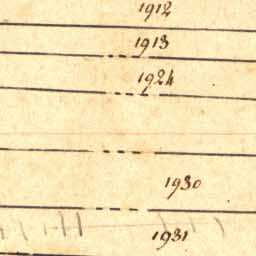 1912
1913
1924
1930
1931